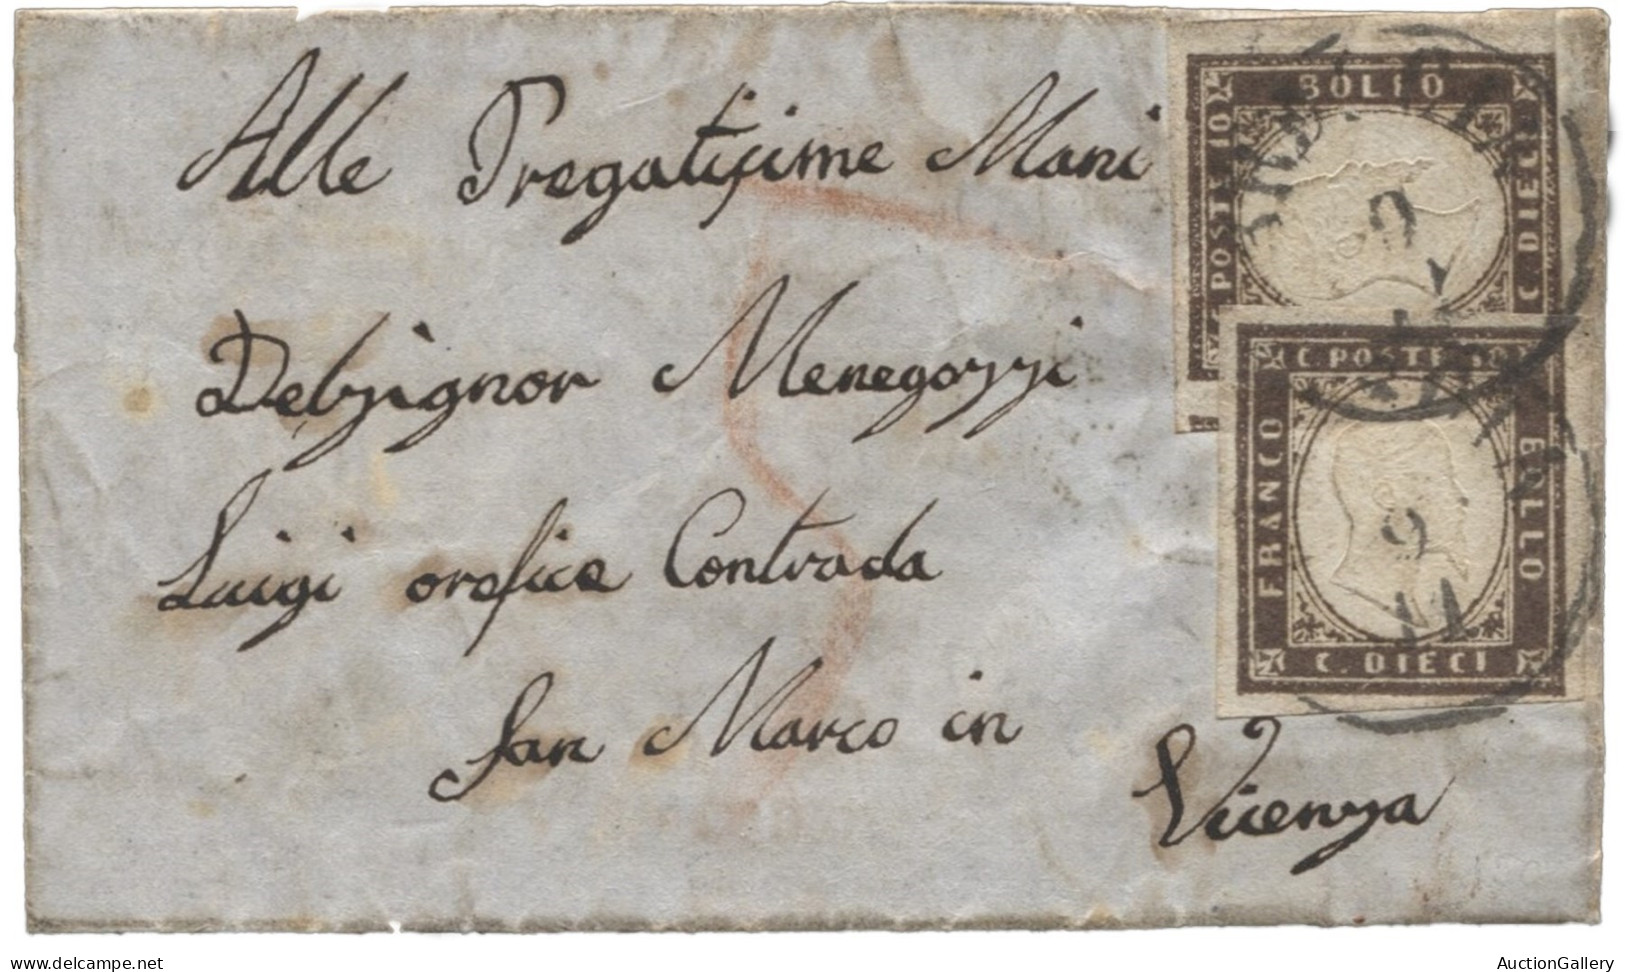 Alle Pregatisime Mani
Delsignor Menegozzi
Luigi orefice Contrada
San Marco in
Vicenza
BOLLO
C. POSTE 10
C. DIECI
C. POSTE 10
FRANCO
BOLLO
C. DIECI
9
9
11
AuctionGallery